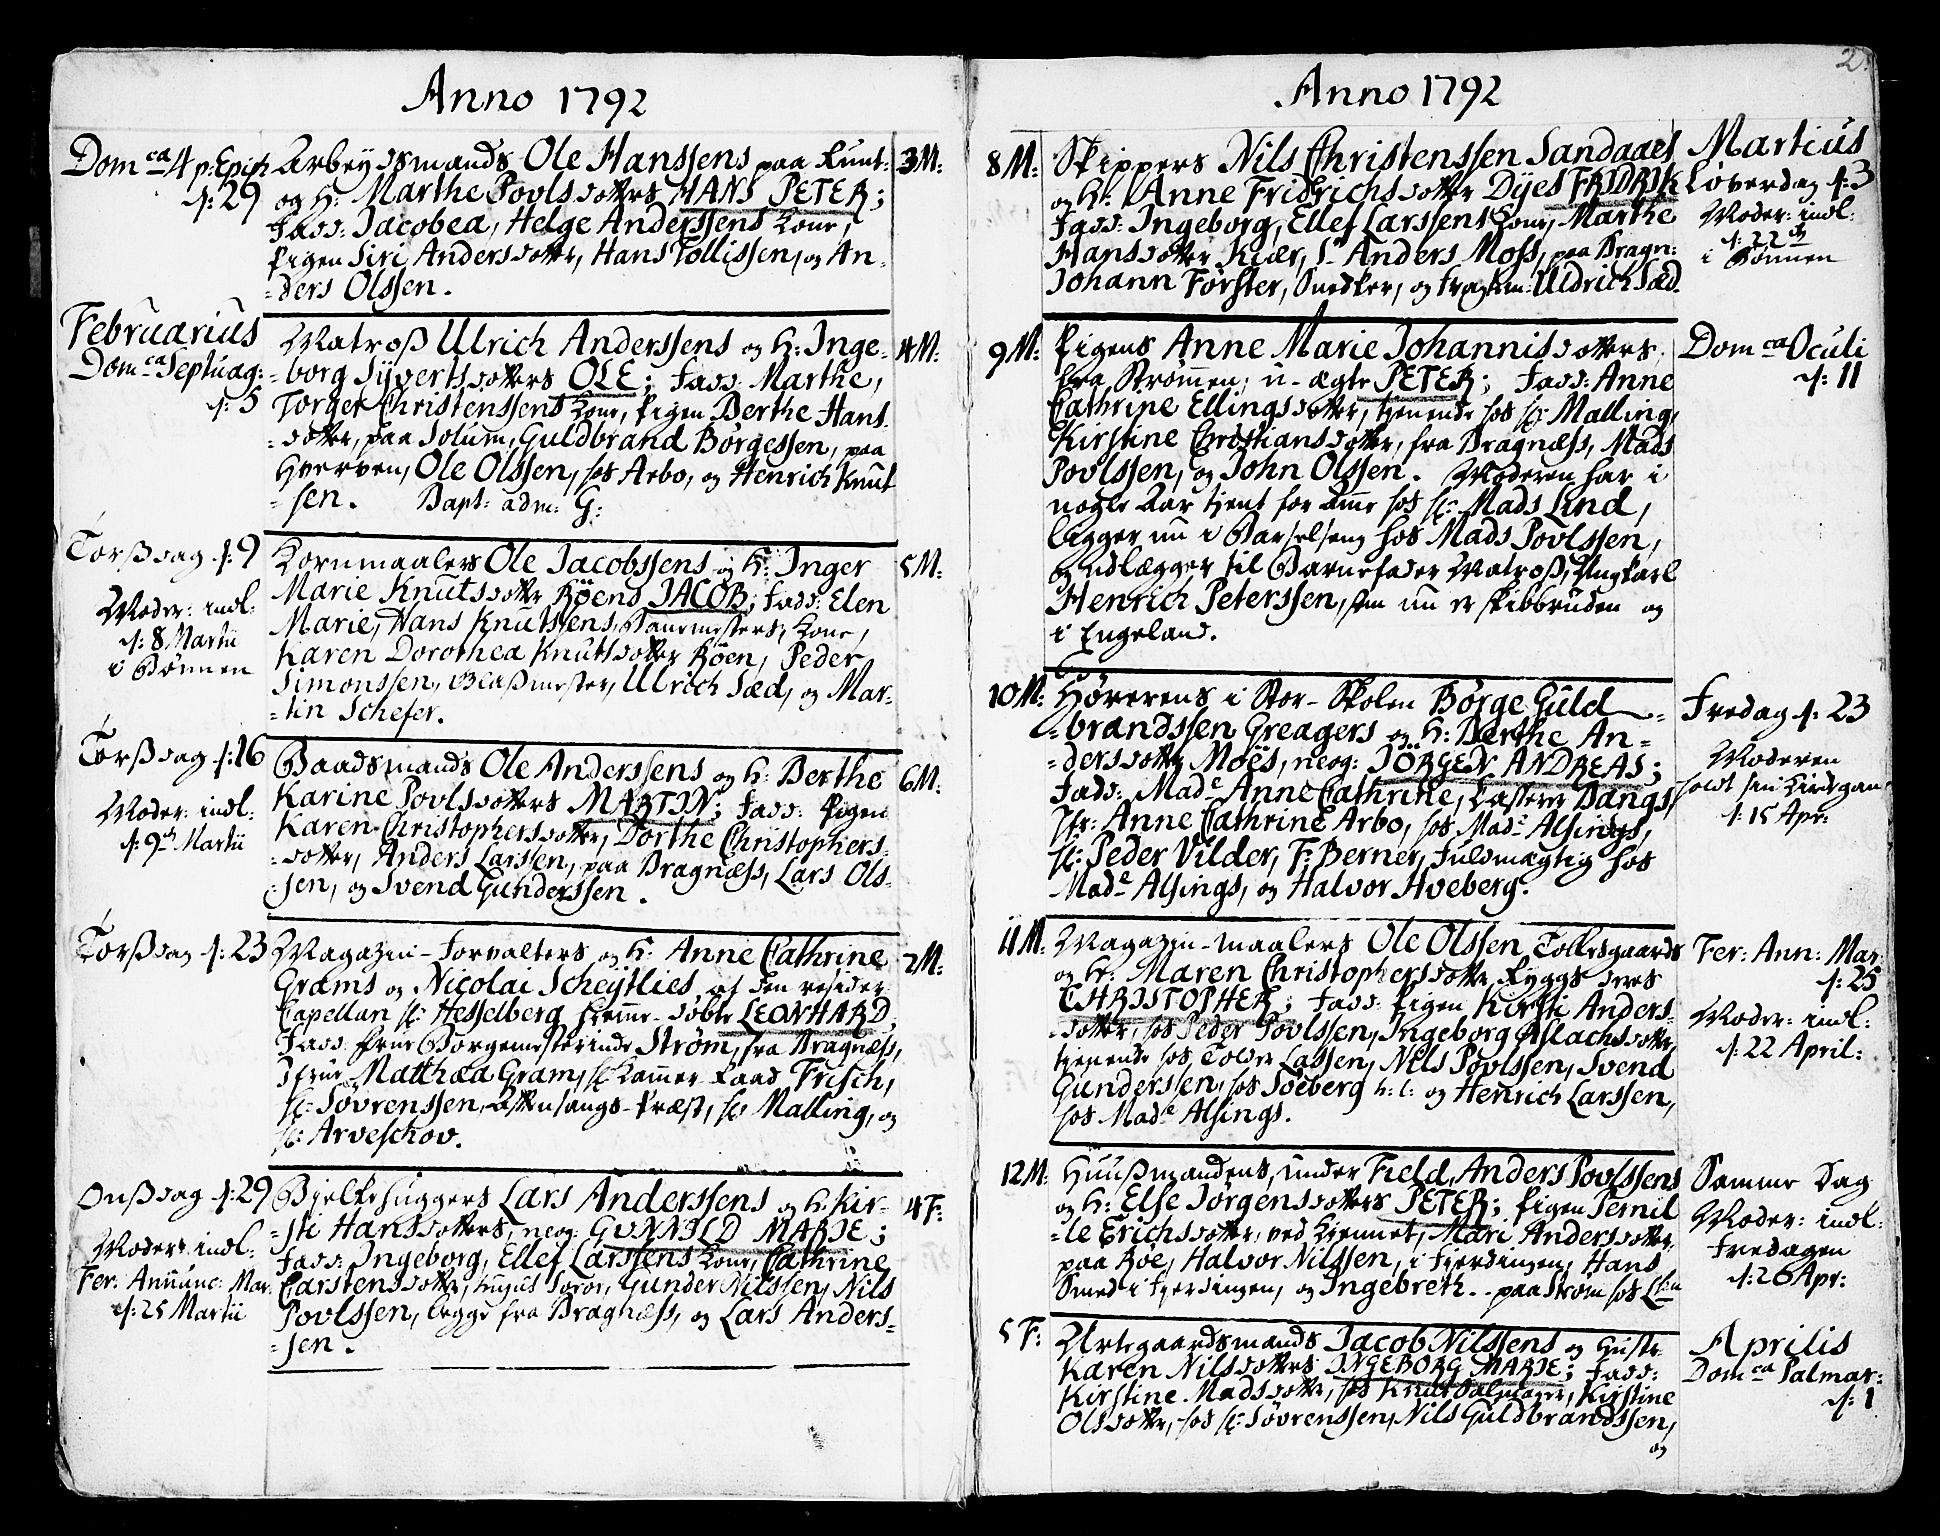 Anno 1792
Dom ca 4 p. Epiph
d: 29
Arbeydsmands Ole Hanssens paa Tunt:
og H: Marthe Povlsdotters HANS PETER;
Fadd: Jacobea, Helge Anderssens Kone,
Pigen Siri Andersdotter, Hans Tollissen, og An-
-ders Olssen.
3 M:
Februarius
Dom ca Septuag:
d: 5
Matroß Ulrich Anderssens og H: Inge-
-borg Syvertsdotters OLE; Fadd: Marthe,
Torger Christenssens Kone, Pigen Berthe Hans-
-dotter, paa Solum, Guldbrand Børgessen, paa
Hverven, Ole Olssen, hos Arbo, og Henrich Knut
-sen. Bapt: adm: G:
4 M:
Torßdag d: 9
Moder: indl:
d: 8 Martii
i Bønnen
Kornmaalers Ole Jacobssens og H: Inger
Marie Knutsdotter Röens JACOB; Fadd: Elen
Marie, Hans Knutssens, Kone,
Karen Dorothea Knutsdotter Röen, Peder
Simonssen, Glaßmester, Ulrich Sæd, og Mar-
-tin Schefer.
5 M:
Torßdag d: 16
Moder: indl:
d: 9de Martii
Baadsmands Ole Anderssens og H: Berthe
Karine Povlsdotters MARTIN; Fadd: Pigen
Karen Christophersdotter, Dorthe Christophers-
-dotter, Anders Larssen, paa Bragnæss, Lars Ols-
-sen, og Svend Gunderssen.
6 M:
Torßdag d: 23
Magazin-Forvalters og H: Anne Cathrine
Grams og Nicolai Scheitlies af den resider:
Capellan Hr: Hesselberg hjemme-døbte LEONHARD,
Fadd: Frue Borgemesterinde Strøm, fra Bragnæss,
Jfrue Matthea Gram, Hr: Kammer-Raad Frisch,
Hr: Søvrenssen, Aftensangs-Præst, Hr: Malling, og
Hr: Arveschov.
7 M:
Onßdag d: 29
Moder: indl:
Fer: Annunc: Mar:
d: 25 Martii
Bjelkehuggers Lars Anderssens og H: Kir-
-sti Hansdotters, neog: GUNNILD MARIE;
Fadd: Ingeborg, Ellef Larssens Kone, Cathrine
Carstensdotter, hujus soror, Gunder Nilssen, Nils
Povlssen, begge fra Bragnæss, og Lars Anders-
-sen.
4 F:
2.
Anno 1792
8 M:
Skippers Nils Christenssen Sandaaes
og H: Anne Fridrichsdotter Dyes FRIDRIK
Fadd: Ingeborg, Ellef Larssens Kone, Marthe
Hansdotter Kiær, Sr Anders Moss, paa Bragn:
Johann Førster, Snedker, og Uldrich Sæd.
Martius
Løverdag d: 3
Moder: indl:
d: 22de
i Bønnen
9 M:
Pigens Anne Marie Johannisdotters
fra Strømmen, u-ægte PETER; Fadd: Anne
Cathrine Ellingsdotter, tjenende hos Hr: Malling,
Kirstine Christiansdotter, fra Bragnæss, Mads
Povlssen, og John Olssen. Moderen har i
nogle Aar tjent for Amme hos Hr: Mads Lind,
ligger nu i Barselseng hos Mads Povlssen,
og udlægger til Barnefader Matroß, Ungkarl
Henrich Peterssen, som nu er skibbruden og
i Engeland.
Dom ca Oculi
d: 11
10 M:
Hørerens i Stor-Skolen Börge Guld-
-brandssen Greagers og H: Berthe An-
-dersdotter Moës, neog: JÖRGEN ANDREAS;
Fadd: Made Anne Cathrine, Bangs,
Jfr: Anne Cathrine Arbo, hos Made Alsings,
Hr: Peder Vilder, F: Berner, Fuldmægtig hos
Made Alsings, og Halvor Hveberg.
Fredag d: 23
Moderen
holdt sin Kirkgang
d: 15 Apr:
11 M:
Magazin-maalers Ole Olssen Tollesgaards
og H: Maren Christophersdotter Ryggs deres
CHRISTOPHER; Fadd: Pigen Kirsti Anders-
-dotter, hos Peder Povlssen, Ingeborg Aslachsdotter,
tjenende hos Tolder Lassen, Nils Povlssen, Svend
Gunderssen, hos Soeberg og Henrich Larssen,
hos Made Alsings.
Fer: Ann: Mar:
d: 25
Moder: indl:
d: 22 April:
12 M:
Huußmandens, under Field, Anders Povlssens
og H: Else Jørgensdotters PETER; Pigen Pernil-
-le Erichsdotter, ved Hjemmet, Mari Andersdotter,
paa Röe, Halvor Nilssen, i Fjerdingen, Hans
Smed i Fjerdingen, og Ingebreth . . paa Strøm hos
Samme Dag
Moder: indl:
Fredagen
d: 26 Apr:
5 F:
Urtegaardsmands Jacob Nilssens og Hustr:
Karen Nilsdotters INGEBORG MARIE; Fadd:
Kirstine Madsdotter, hos Knut Salmager, Kirstine
Olsdotter, hos Hr: Søvrenssen, Nils Guldbrandssen,
og
Aprilis
Dom ca Palmar:
d: 1